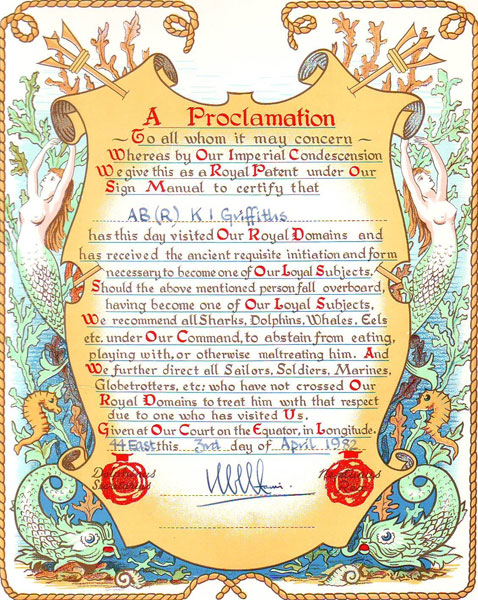 A Proclamation
~ To all whom it may concern ~
Whereas by Our Imperial Condescension
We give this as a Royal Patent under Our
Sign Manual to certify that
AB(R) K I Griffiths
has this day visited Our Royal Domains and
has received the ancient requisite initiation and form
necessary to become one of Our Loyal Subjects.
Should the above mentioned person fall overboard,
having become one of Our Loyal Subjects,
We recommend all Sharks, Dolphins, Whales, Eels
etc. under Our Command, to abstain from eating,
playing with, or otherwise maltreating him. And
We further direct all Sailors, Soldiers, Marines,
Globetrotters, etc: who have not crossed Our
Royal Domains to treat him with that respect
due to one who has visited Us.
Given at Our Court on the Equator, in Longitude.
44 East this 3rd day of April 1982